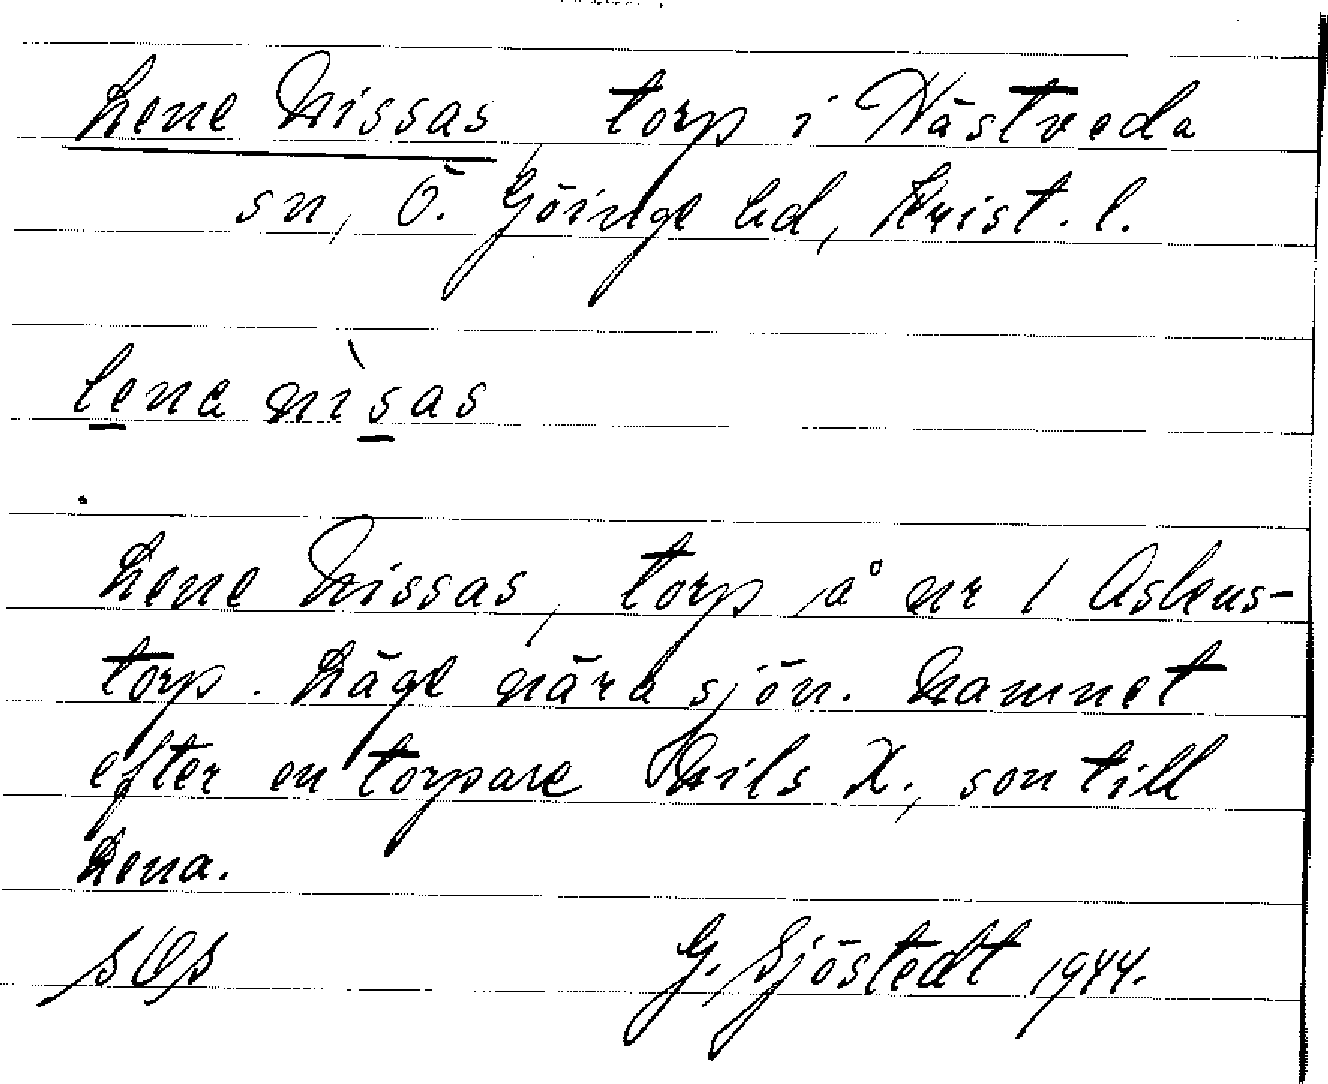 Lene Nissas, torp i Hästveda
sn, Ö. Göinge hd, Krist. l.
lena nìsas
Lene Nissas, torp på nr 1 Aslens-
torp. Låge nära sjön. Namnet
efter en torpare Nils X., son till
Lena.
G. Sjöstedt 1944.